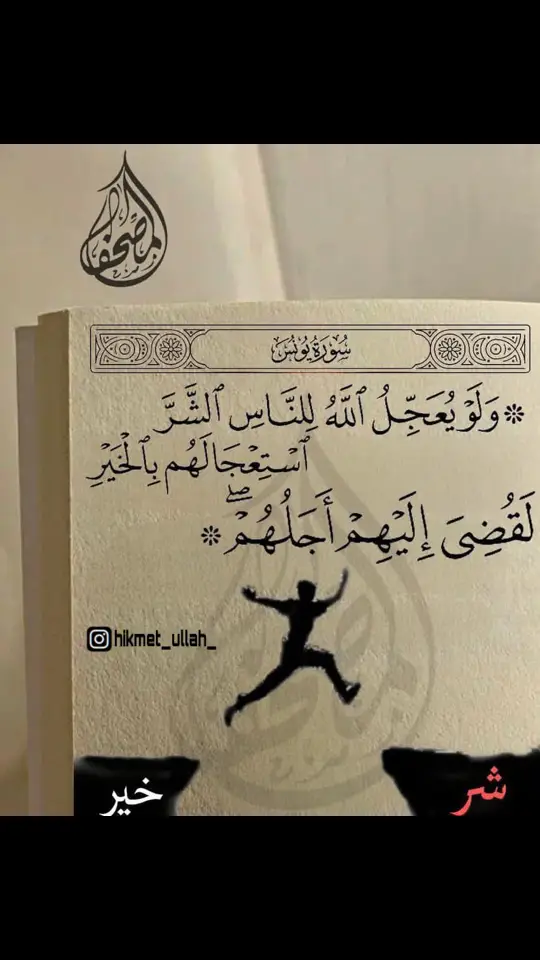 المصحف
سُورَةُ يُونُسَ
❊ وَلَوْ يُعَجِّلُ ٱللَّهُ لِلنَّاسِ ٱلشَّرَّ
ٱسْتِعْجَالَهُم بِٱلْخَيْرِ
لَقُضِىَ إِلَيْهِمْ أَجَلُهُمْۖ ❊
hikmet_ullah_
خير
شر